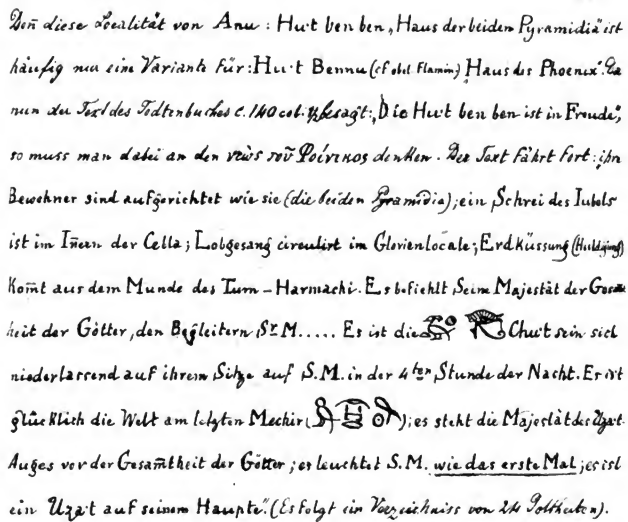 Denn diese Localität von Anu: Hut ben ben „Haus der beiden Pyramidia" ist
häufig nur eine Variante für: Hu·t Bennu (cf obel. Flamin.) „Haus des Phoenix". Da
nun der Text des Todtenbuches c. 140 col. besagt: „Die Hut ben ben ist in Freude",
so muss man dabei an den νεὼς τοῦ Φοίνικος denken. Der Text fährt fort: ihre
Bewohner sind aufgerichtet wie sie (die beiden Pyramidia); ein Schrei des Jubels
ist im Iñern der Cella; Lobgesang circulirt im Glorienlocale; Erdküssung (Huldigung)
kom̄t aus dem Munde des Tum-Harmachi. Es befiehlt Seine Majestät der Gesam̄t-
heit der Götter, den Begleitern Sr M..... Es ist die Chu·t sein sich
niederlassend auf ihrem Sitze auf S.M. in der 4ten Stunde der Nacht. Es ist
glücklich die Welt am letzten Mechir ( ); es steht die Majestät des Uza·t
Auges vor der Gesam̄theit der Götter; es leuchtet S.M. wie das erste Mal; es ist
ein Uza·t auf seinem Haupte." (Es folgt ein Verzeichniss von 24 Gottheiten).